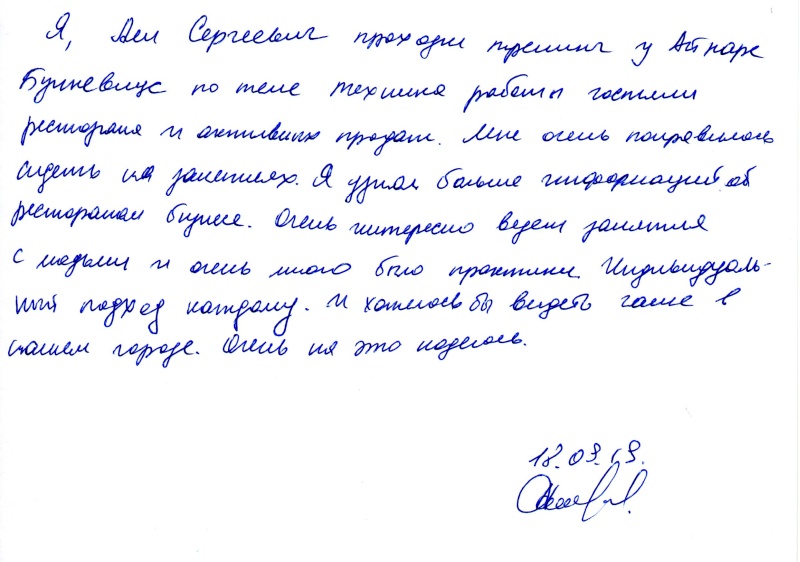 Я, Ден Сергеевич проходил тренинг у Айнаре
по теме техника работы с гостями
ресторана и активных продаж. Мне очень понравилось
сидеть на занятиях. Я узнал больше информаций об
ресторанам бизнесе. Очень интересно ведет занятия
с людьми и очень много было практики. Индивидуаль-
ный подход каждому. И хотелось бы видеть чаще в
нашем городе. Очень на это надеюсь.
18.09.19.